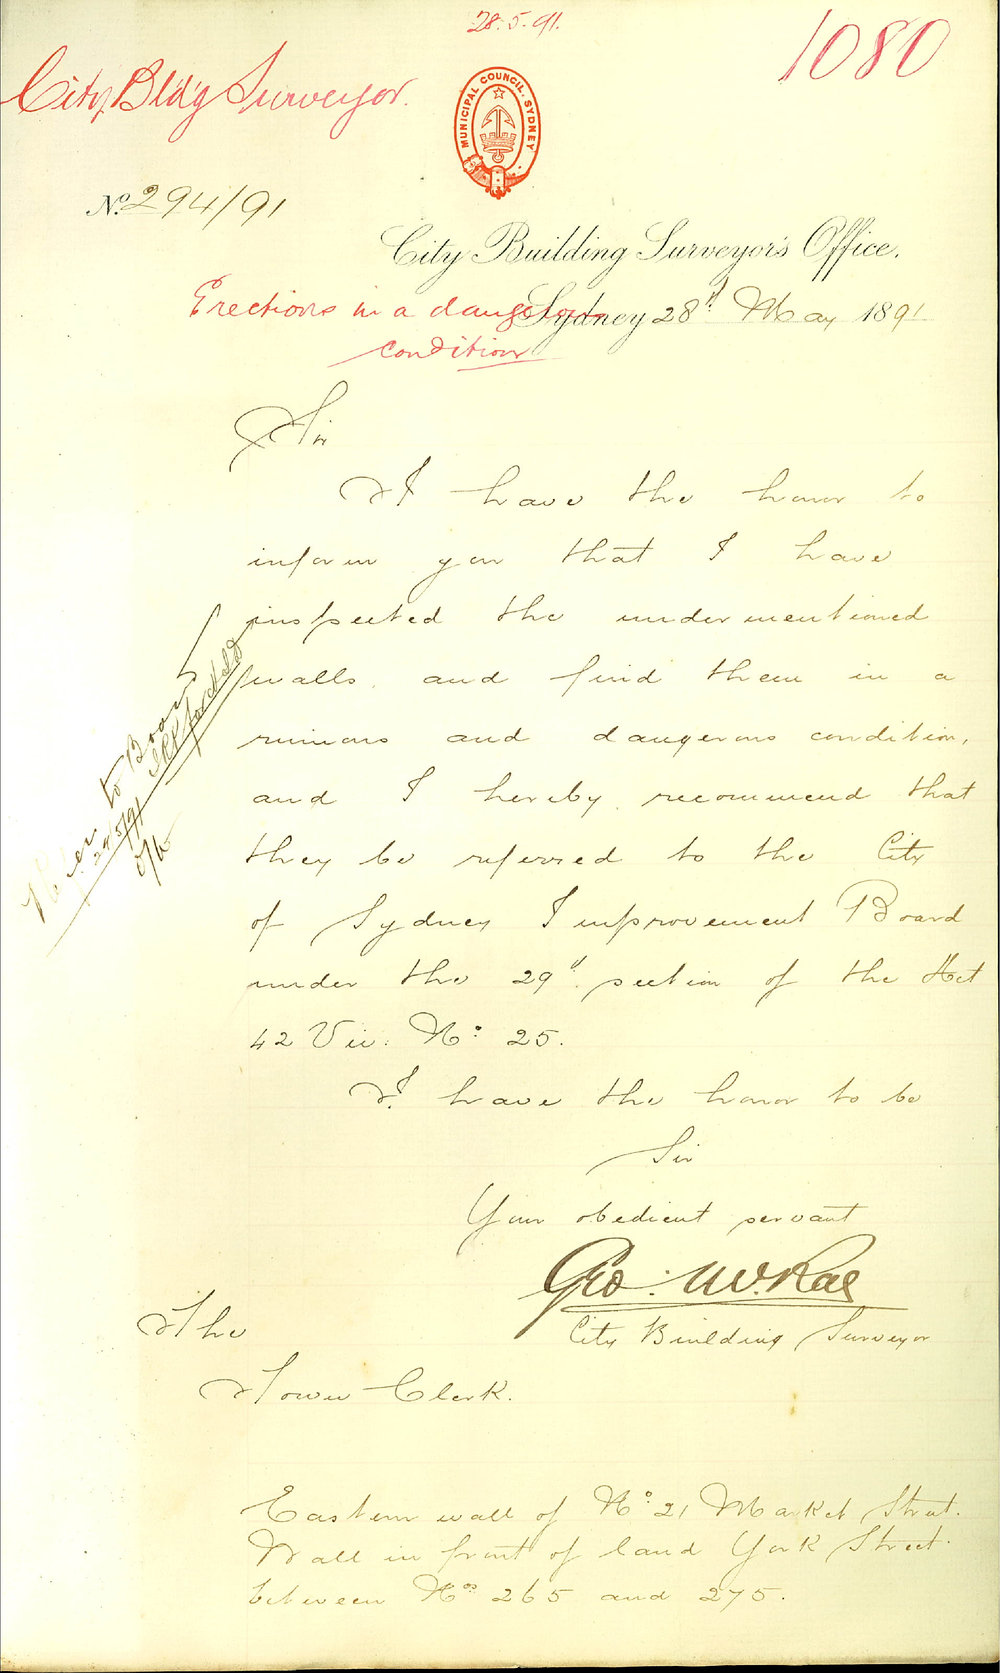 28.5.91.
1080
City Bldg Surveyor.
MUNICIPAL COUNCIL. SYDNEY
No. 294/91
City Building Surveyor's Office.
Sydney 28th May 1891
Erections in a dangerous
condition
Sir
I have the honor to
inform you that I have
inspected the undermentioned
walls, and find them in a
ruinous and dangerous condition,
and I hereby recommend that
they be referred to the City
of Sydney Improvement Board
under the 29th section of the Act
42 Vic: No: 25.
I have the honor to be
Sir
Your obedient servant
Geo: McRae
City Building Surveyor
The
Town Clerk.
Refer to Board
29/5/91
Eastern wall of No: 21 Market Street.
Wall in front of land York Street.
between Nos 265 and 275.